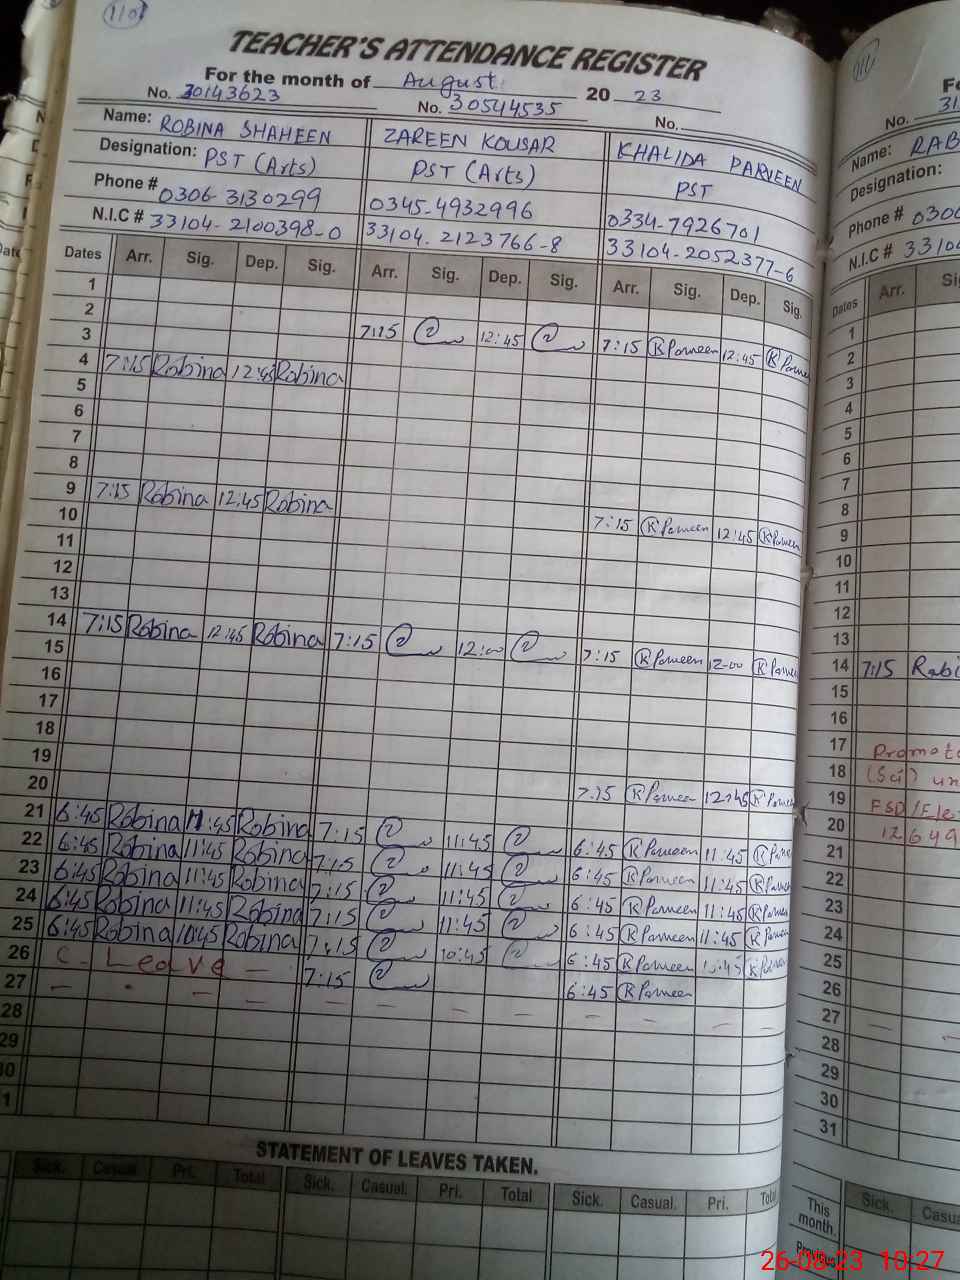 110
TEACHER'S ATTENDANCE REGISTER
For the month of August. 20 23
No. 30143623 No. 30544535 No.
Name: ROBINA SHAHEEN ZAREEN KOUSAR KHALIDA PARVEEN
Designation: PST (Arts) PST (Arts) PST
Phone # 0306-3130299 0345-4932996 0334-7926701
N.I.C # 33104-2100398-0 33104-2123766-8 33104-2052377-6
Dates Arr. Sig. Dep. Sig. Arr. Sig. Dep. Sig. Arr. Sig. Dep. Sig.
1
2
3 7:15 12:45 7:15 K Parveen 12:45 K Parveen
4 7:15 Robina 12:45 Robina
5
6
7
8
9 7:15 Robina 12:45 Robina
10 7:15 K Parveen 12:45 K Parveen
11
12
13
14 7:15 Robina 12:45 Robina 7:15 12:00 7:15 K Parveen 12-00 K Parveen
15
16
17
18
19
20 7:15 K Parveen 12:45 K Parveen
21 6:45 Robina 11:45 Robina 7:15 11:45 6:45 K Parveen 11:45 K Parveen
22 6:45 Robina 11:45 Robina 7:15 11:45 6:45 K Parveen 11:45 K Parveen
23 6:45 Robina 11:45 Robina 7:15 11:45 6:45 K Parveen 11:45 K Parveen
24 6:45 Robina 11:45 Robina 7:15 11:45 6:45 K Parveen 11:45 K Parveen
25 6:45 Robina 10:45 Robina 7:15 10:45 6:45 K Parveen K Parveen
26 C. Leave - 7:15 6:45 K Parveen
27
28
29
30
1
STATEMENT OF LEAVES TAKEN.
Sick. Casual Pri. Total Sick. Casual. Pri. Total Sick. Casual. Pri. Total
111
No. 31
Name: RAB
Designation:
Phone # 0300
N.I.C # 33100
Dates Arr.
1
2
3
4
5
6
7
8
9
10
11
12
13
14 7:15 Rabi
15
16
17 Promot
18 (Sci) un
19 FSD/Ele
20 12649
21
22
23
24
25
26
27
28
29
30
31
Sick. Casua
This month.
Previous
26-08-23 10:27